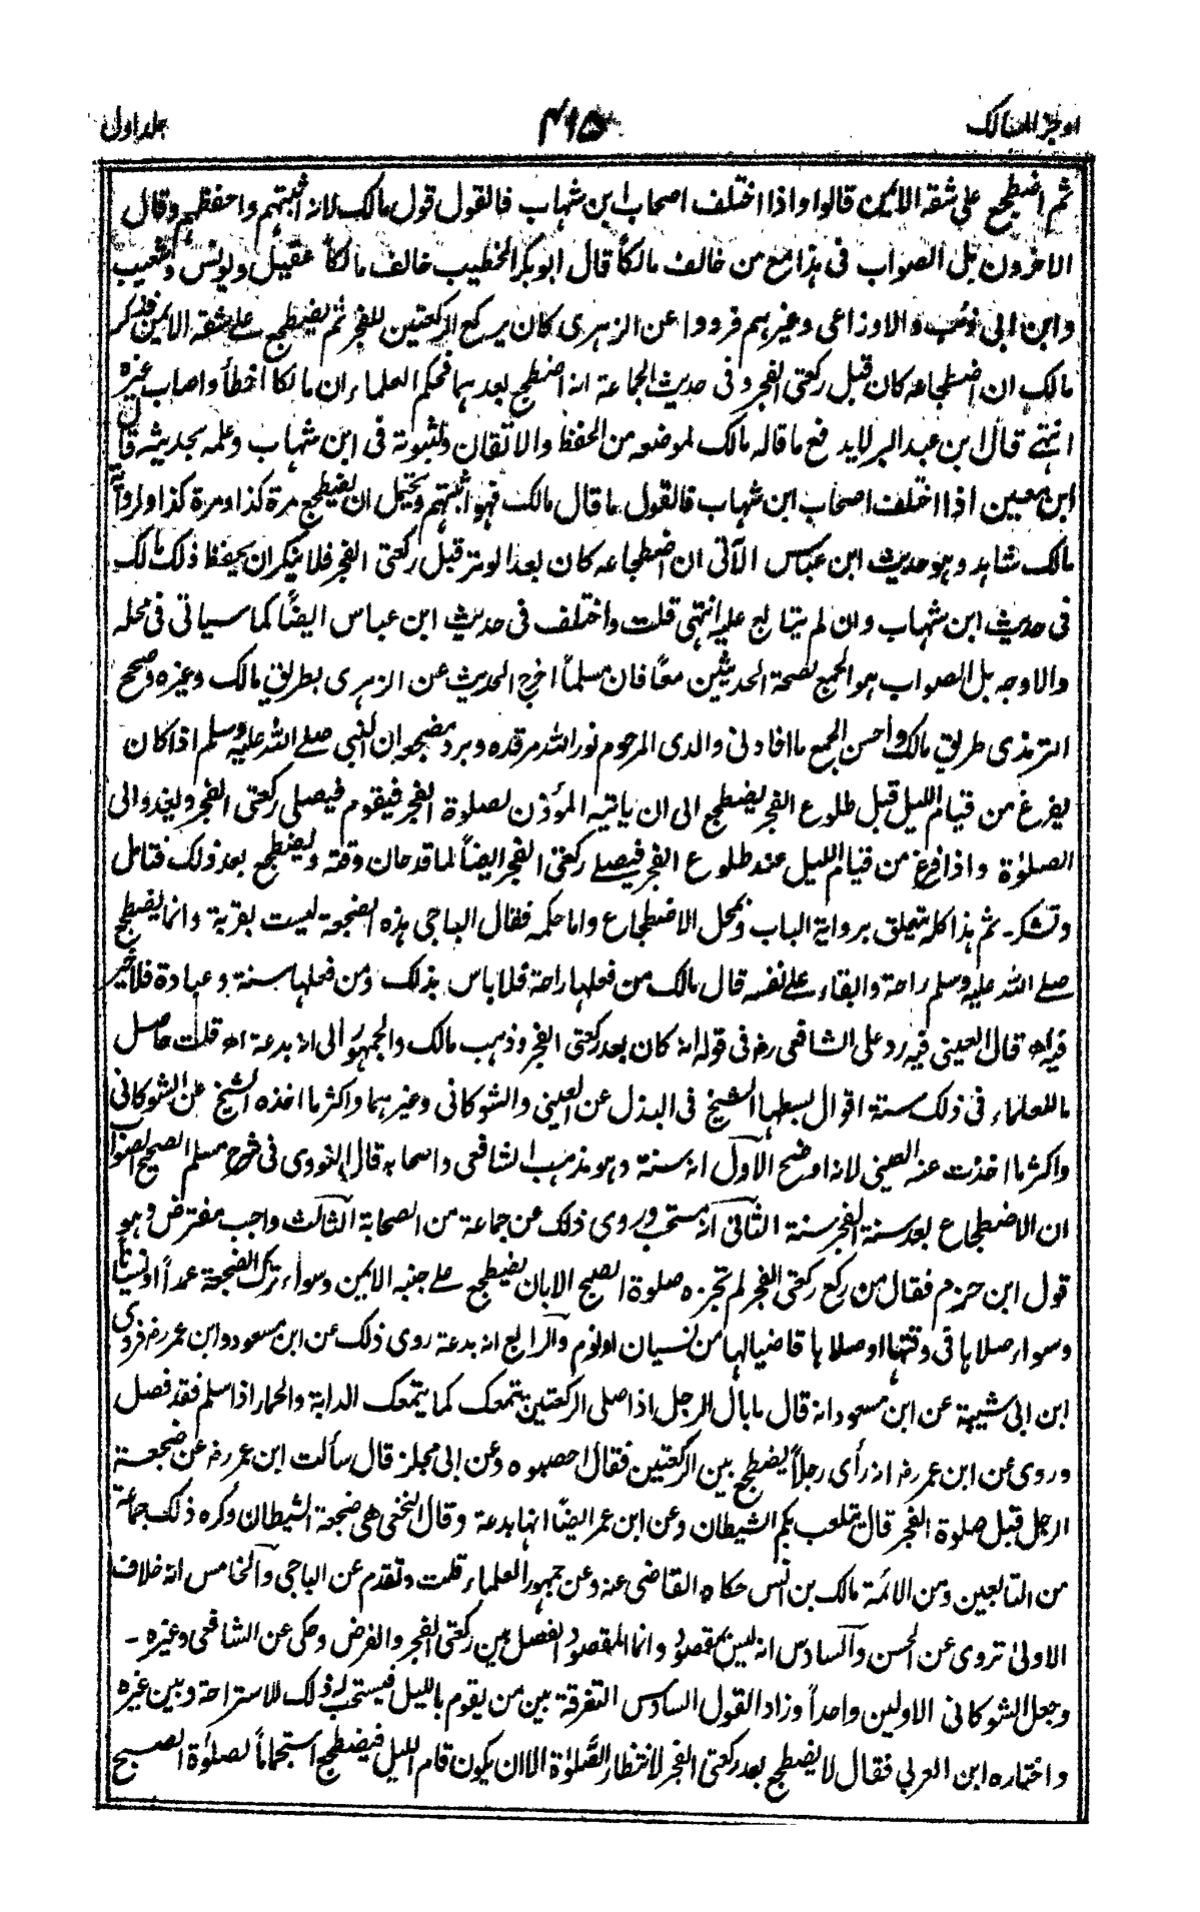 اوجز المسالك ۴۱۵ جلد اول
ثم اضطجع على شقه الايمن قالوا واذا اختلف اصحاب ابن شهاب فالقول قول مالك لانه اثبتهم واحفظهم وقال
الاخرون بل الصواب فى هذا مع من خالف مالكاً قال ابو بكر الخطيب خالف مالكاً عقيل ويونس وشعيب
وابن ابى ذئب والاوزاعى وغيرهم فرووا عن الزهرى كان يركع الركعتين للفجر ثم يضطجع على شقه الايمن فذكر
مالك ان اضطجاعه كان قبل ركعتى الفجر وفى حديث الجماعة انه اضطجع بعدهما فحكم العلماء ان مالكا اخطأ واصاب غيره
انتهى قال ابن عبد البر لا يدفع ما قاله مالك لموضعه من الحفظ والاتقان ولثبوته فى ابن شهاب وعلمه بحديثه قال
ابن معين اذا اختلف اصحاب ابن شهاب فالقول ما قال مالك فهو اثبتهم ويحتمل ان يضطجع مرة كذا ومرة كذا ولرواية
مالك شاهد وهو حديث ابن عباس الآتى ان اضطجاعه كان بعد الوتر قبل ركعتى الفجر فلا ينكر ان يحفظ ذلك مالك
فى حديث ابن شهاب وان لم يتابع عليه انتهى قلت واختلف فى حديث ابن عباس ايضاً كما سياتى فى محله
والاوجه بل الصواب هو الجمع لصحة الحديثين معاً فان مسلماً اخرج الحديث عن الزهرى بطريق مالك وغيره وصحح
الترمذى طريق مالك واحسن الجمع ما افادنى والدى المرحوم نور الله مرقده وبرد مضجعه ان النبى صلى الله عليه وسلم اذا كان
يفرغ من قيام الليل قبل طلوع الفجر يضطجع الى ان ياتيه المؤذن لصلوة الفجر فيقوم فيصلى ركعتى الفجر ويغدو الى
الصلوٰة واذا فرغ من قيام الليل عند طلوع الفجر فيصلى ركعتى الفجر ايضاً لما قد حان وقته ويضطجع بعد ذلك فتامل
وتشكر۔ ثم هذا كله يتعلق برواية الباب وبمحل الاضطجاع واما حكمه فقال الباجى هذه الضجعة ليست بقربة وانما يضطجع
صلى الله عليه وسلم راحة وابقاء على نفسه قال مالك من فعلها راحة فلا باس بذلك ومن فعلها سنة وعبادة فلا خير
فيه اه قال العينى فيه رد على الشافعى رح فى قوله انه كان بعد ركعتى الفجر وذهب مالك والجمهور الى انه بدعة اه قلت حاصل
ما للعلماء فى ذلك ستة اقوال بسطها الشيخ فى البذل عن العينى والشوكانى وغيرهما واكثر ما اخذه الشيخ عن الشوكانى
واكثر ما اخذت عنه العينى لانه اوضح الاول انه سنة وهو مذهب الشافعى واصحابه قال النووى فى شرح مسلم الصحيح الصواب
ان الاضطجاع بعد سنة الفجر سنة الثانى انه مستحب وروى ذلك عن جماعة من الصحابة الثالث واجب مفترض وهو
قول ابن حزم فقال من ركع ركعتى الفجر لم تجزه صلوة الصبح الا بان يضطجع على جنبه الايمن وسواء ترك الضجعة عمداً او نسياناً
وسواء صلاها فى وقتها او صلاها قاضيا لها من نسيان او نوم والرابع انه بدعة روى ذلك عن ابن مسعود وابن عمر رض فروى
ابن ابى شيبة عن ابن مسعود انه قال ما بال الرجل اذا صلى الركعتين يتمعك كما يتمعك الدابة والحمار اذا سلم فقد فصل
وروى عن ابن عمر رض انه رأى رجلاً يضطجع بين الركعتين فقال احصبوه وعن ابى مجلز قال سألت ابن عمر رض عن ضجعة
الرجل قبل صلوة الفجر قال يتلعب بكم الشيطان وعن ابن عمر ايضاً انها بدعة وقال النخعى هى ضجعة الشيطان وكره ذلك جماعة
من التابعين ومن الائمة مالك بن انس حكاه القاضى عنه وعن جمهور العلماء قلت وتقدم عن الباجى والخامس انه خلاف
الاولىٰ تروى عن الحسن والسادس انه ليس بمقصود وانما المقصود الفصل بين ركعتى الفجر والفرض وحكى عن الشافعى وغيره۔
وجعل الشوكانى الاولين واحداً وزاد القول السادس التفرقة بين من يقوم بالليل فيستحب له ذلك للاستراحة وبين غيره
واختاره ابن العربى فقال لا يضطجع بعد ركعتى الفجر لانتظار الصلوٰة الا ان يكون قام الليل فيضطجع استجماماً لصلوٰة الصبح